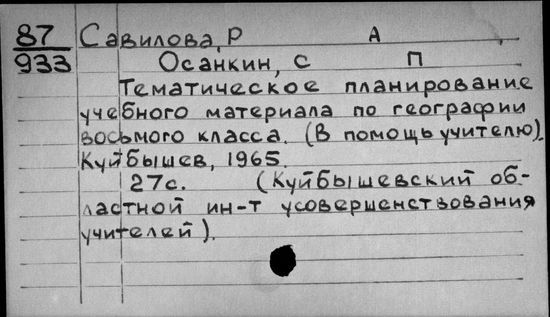 87 Савилова, Р А
933 Осанкин, С П
Тематическое планирование
учебного материала по географии
восьмого класса. (В помощь учителю).
Куйбышев, 1965.
27с. (Куйбышевский об-
ластной ин-т усовершенствования
учителей).